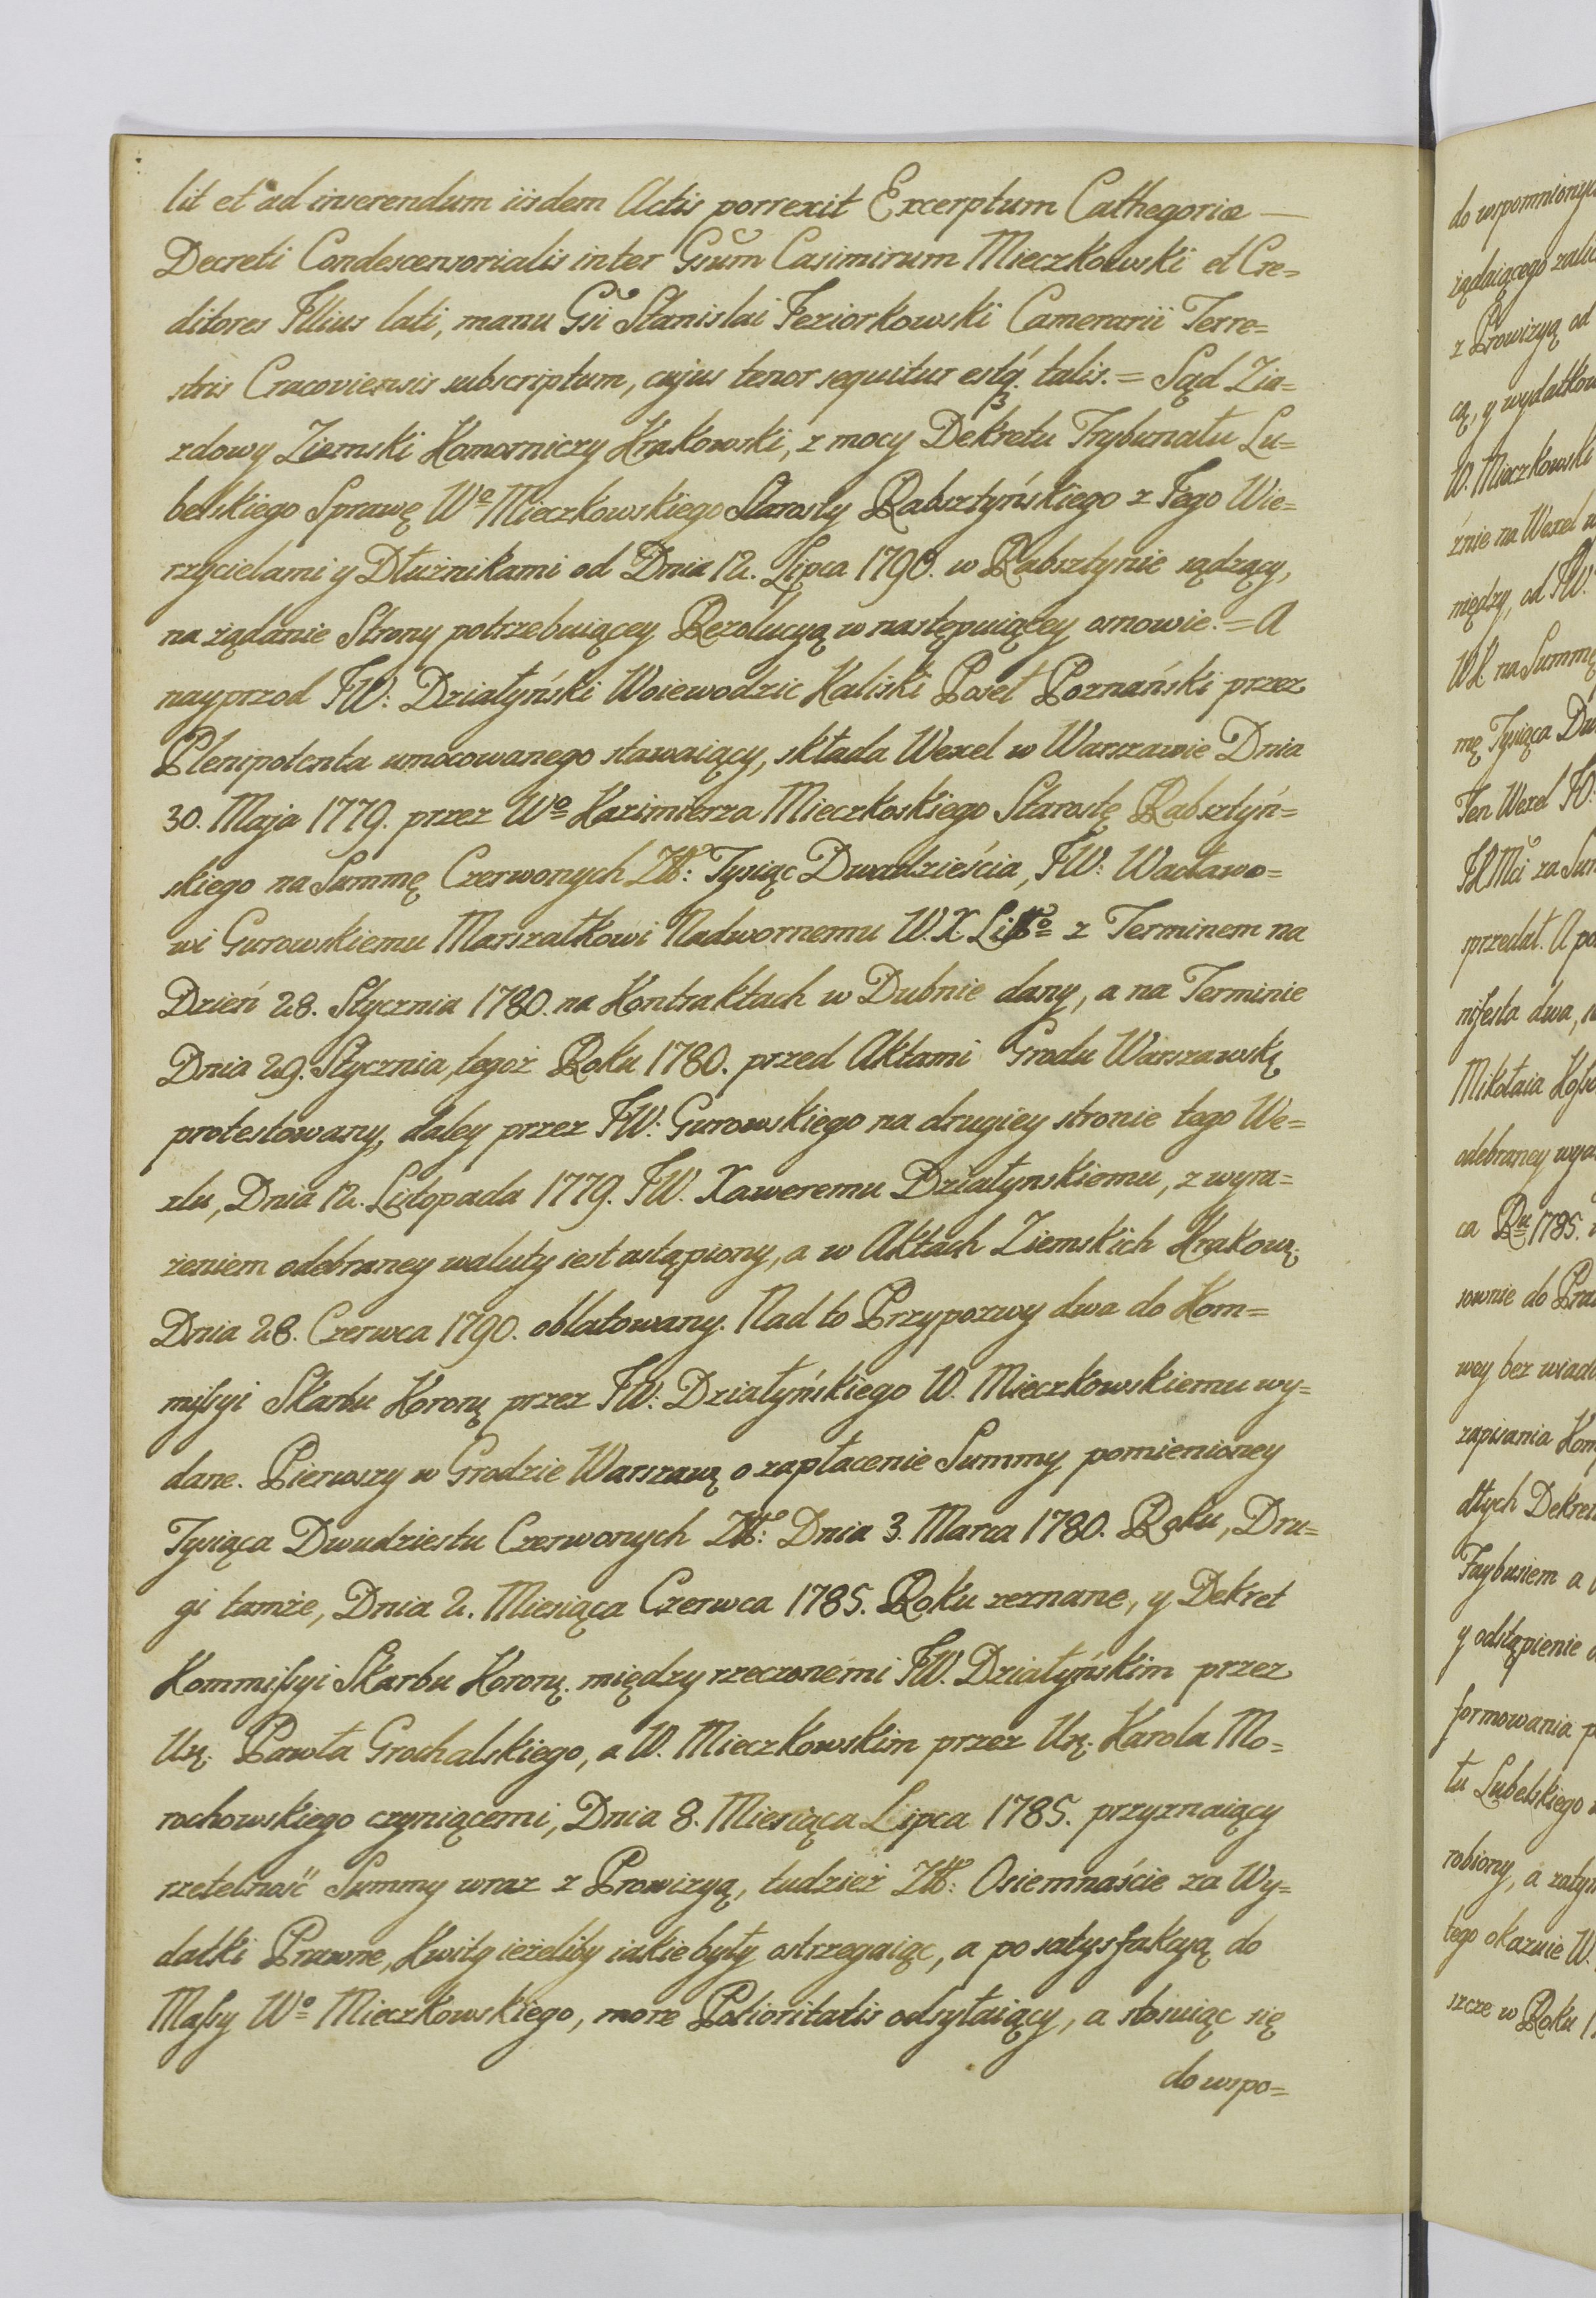 lit et ad inserendum iisdem Actis porrexit Excerptum Cathegoriæ —
Decreti Condescensorialis inter Gsum Casimirum Mieczkowski et Cre=
ditores Illius lati, manu Gsi Stanislai Jeziorkowski Camerarii Terre=
stris Cracoviensis subscriptum, cujus tenor sequitur estq. talis. = Sąd Zia=
zdowy Ziemski Komorniczy Krakowski, z mocy Dekretu Trybunału Lu=
belskiego Sprawę Wo Mieczkowskiego Starosty Rabsztyńskiego z Jego Wie=
rzycielami y Dłużnikami od Dnia 12. Lipca 1790. w Rabsztynie sądzący,
na żądanie Strony potrzebuiącey Rezolucyą w następuiącey osnowie. = A
nayprzod JW: Działyński Woiewodzic Kaliski Poseł Poznański przez
Plenipotenta umocowanego stawaiący, składa Wexel w Warszawie Dnia
30. Maja 1779. przez Wo Kazimierza Mieczkoskiego Starostę Rabsztyń=
skiego na Summę Czerwonych Zł: Tysiąc Dwadzieścia, JW: Wacławo=
wi Gurowskiemu Marszałkowi Nadwornemu W.X. Litto z Terminem na
Dzień 28. Stycznia 1780. na Kontraktach w Dubnie dany, a na Terminie
Dnia 29. Stycznia, tegoż Roku 1780. przed Aktami Grodu Warszawsk.
protestowany, daley przez JW: Gurowskiego na drugiey stronie tego We=
xlu, Dnia 12. Listopada 1779. JW. Xaweremu Działynskiemu, z wyra=
żeniem odebraney waluty iest ustąpiony, a w Aktach Ziemskich Krakow.
Dnia 28. Czerwca 1790. oblatowany. Nad to Przypozwy dwa do Kom=
miſsyi Skarbu Koron. przez JW: Działyńskiego W. Mieczkowskiemu wy=
dane. Pierwszy w Grodzie Warszaw. o zapłacenie Summy pomienioney
Tysiąca Dwudziestu Czerwonych Zł: Dnia 3. Marca 1780. Roku, Dru=
gi tamże, Dnia 2. Miesiąca Czerwca 1785. Roku zeznane, y Dekret
Kommiſsyi Skarbu Koron. między rzeczonémi JW. Działyńskim przez
Ur. Pawła Grochalskiego, a W. Mieczkowskim przez Ur. Karola Mo=
rochowskiego czyniącemi, Dnia 8. Miesiąca Lipca 1785. przyznaiący
rzetelność Summy wraz z Prowizyą, tudzież Zł: Osiemnaście za Wy=
datki Prawne, Kwity ieżeliby iakie były ostrzegaiąc, a po satysfakcyą do
Maſsy Wo Mieczkowskiego, more Potioritatis odsyłaiący, a stosuiąc się
do wspo=
do wspomnionych
żądaiącego
z Prowizyą od
cą, y wydatkow
W. Mieczkowski
źnie na Wexel
między, od JW.
na Summę
mę Tysiąca
Ten Wexel
za
sprzedał. A
nifesta dwa,
Mikołaia
odebraney
ca Ru 1785.
sownie do
wey bez
zapisania
dłych
a
y odstąpienie
formowania
tu Lubelskiego
robiony, a
tego okazuie W.
szcze w Roku